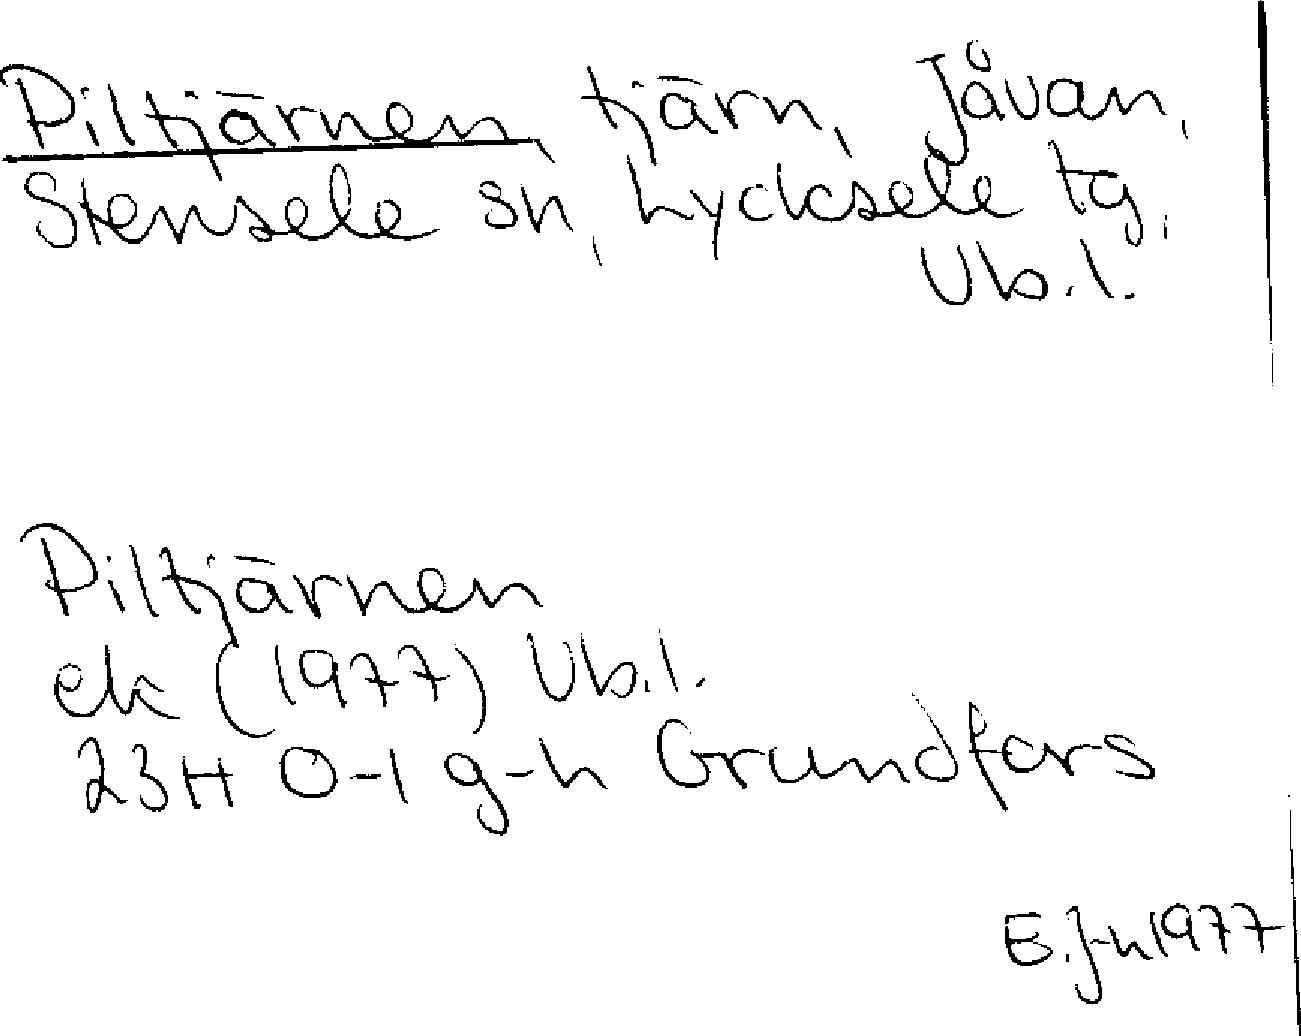 Piltjärnen, tjärn, Jåvan,
Stensele sn, Lycksele tg,
Vb.l.
Piltjärnen
ek (1977) Vb.l.
23H 0-1 g-h Grundfors
E.J-n 1977